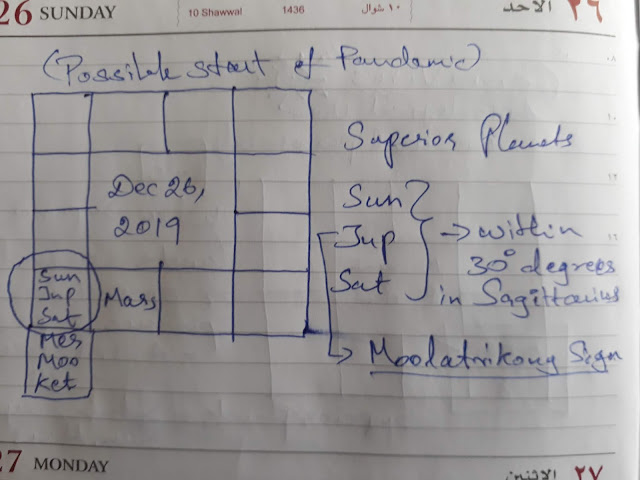 26 SUNDAY 10 Shawwal 1436 ١٠ شوال الاحد ٢٦
(Possible start of Pandemic)
Superior Planets
Dec 26,
2019
Sun
Jup
Sat
→ within
30° degrees
in Sagittarius
Sun
Jup
Sat
Mars
Mer
Moo
Ket
→ Moolatrikona Sign
27 MONDAY الاثنين ٢٧